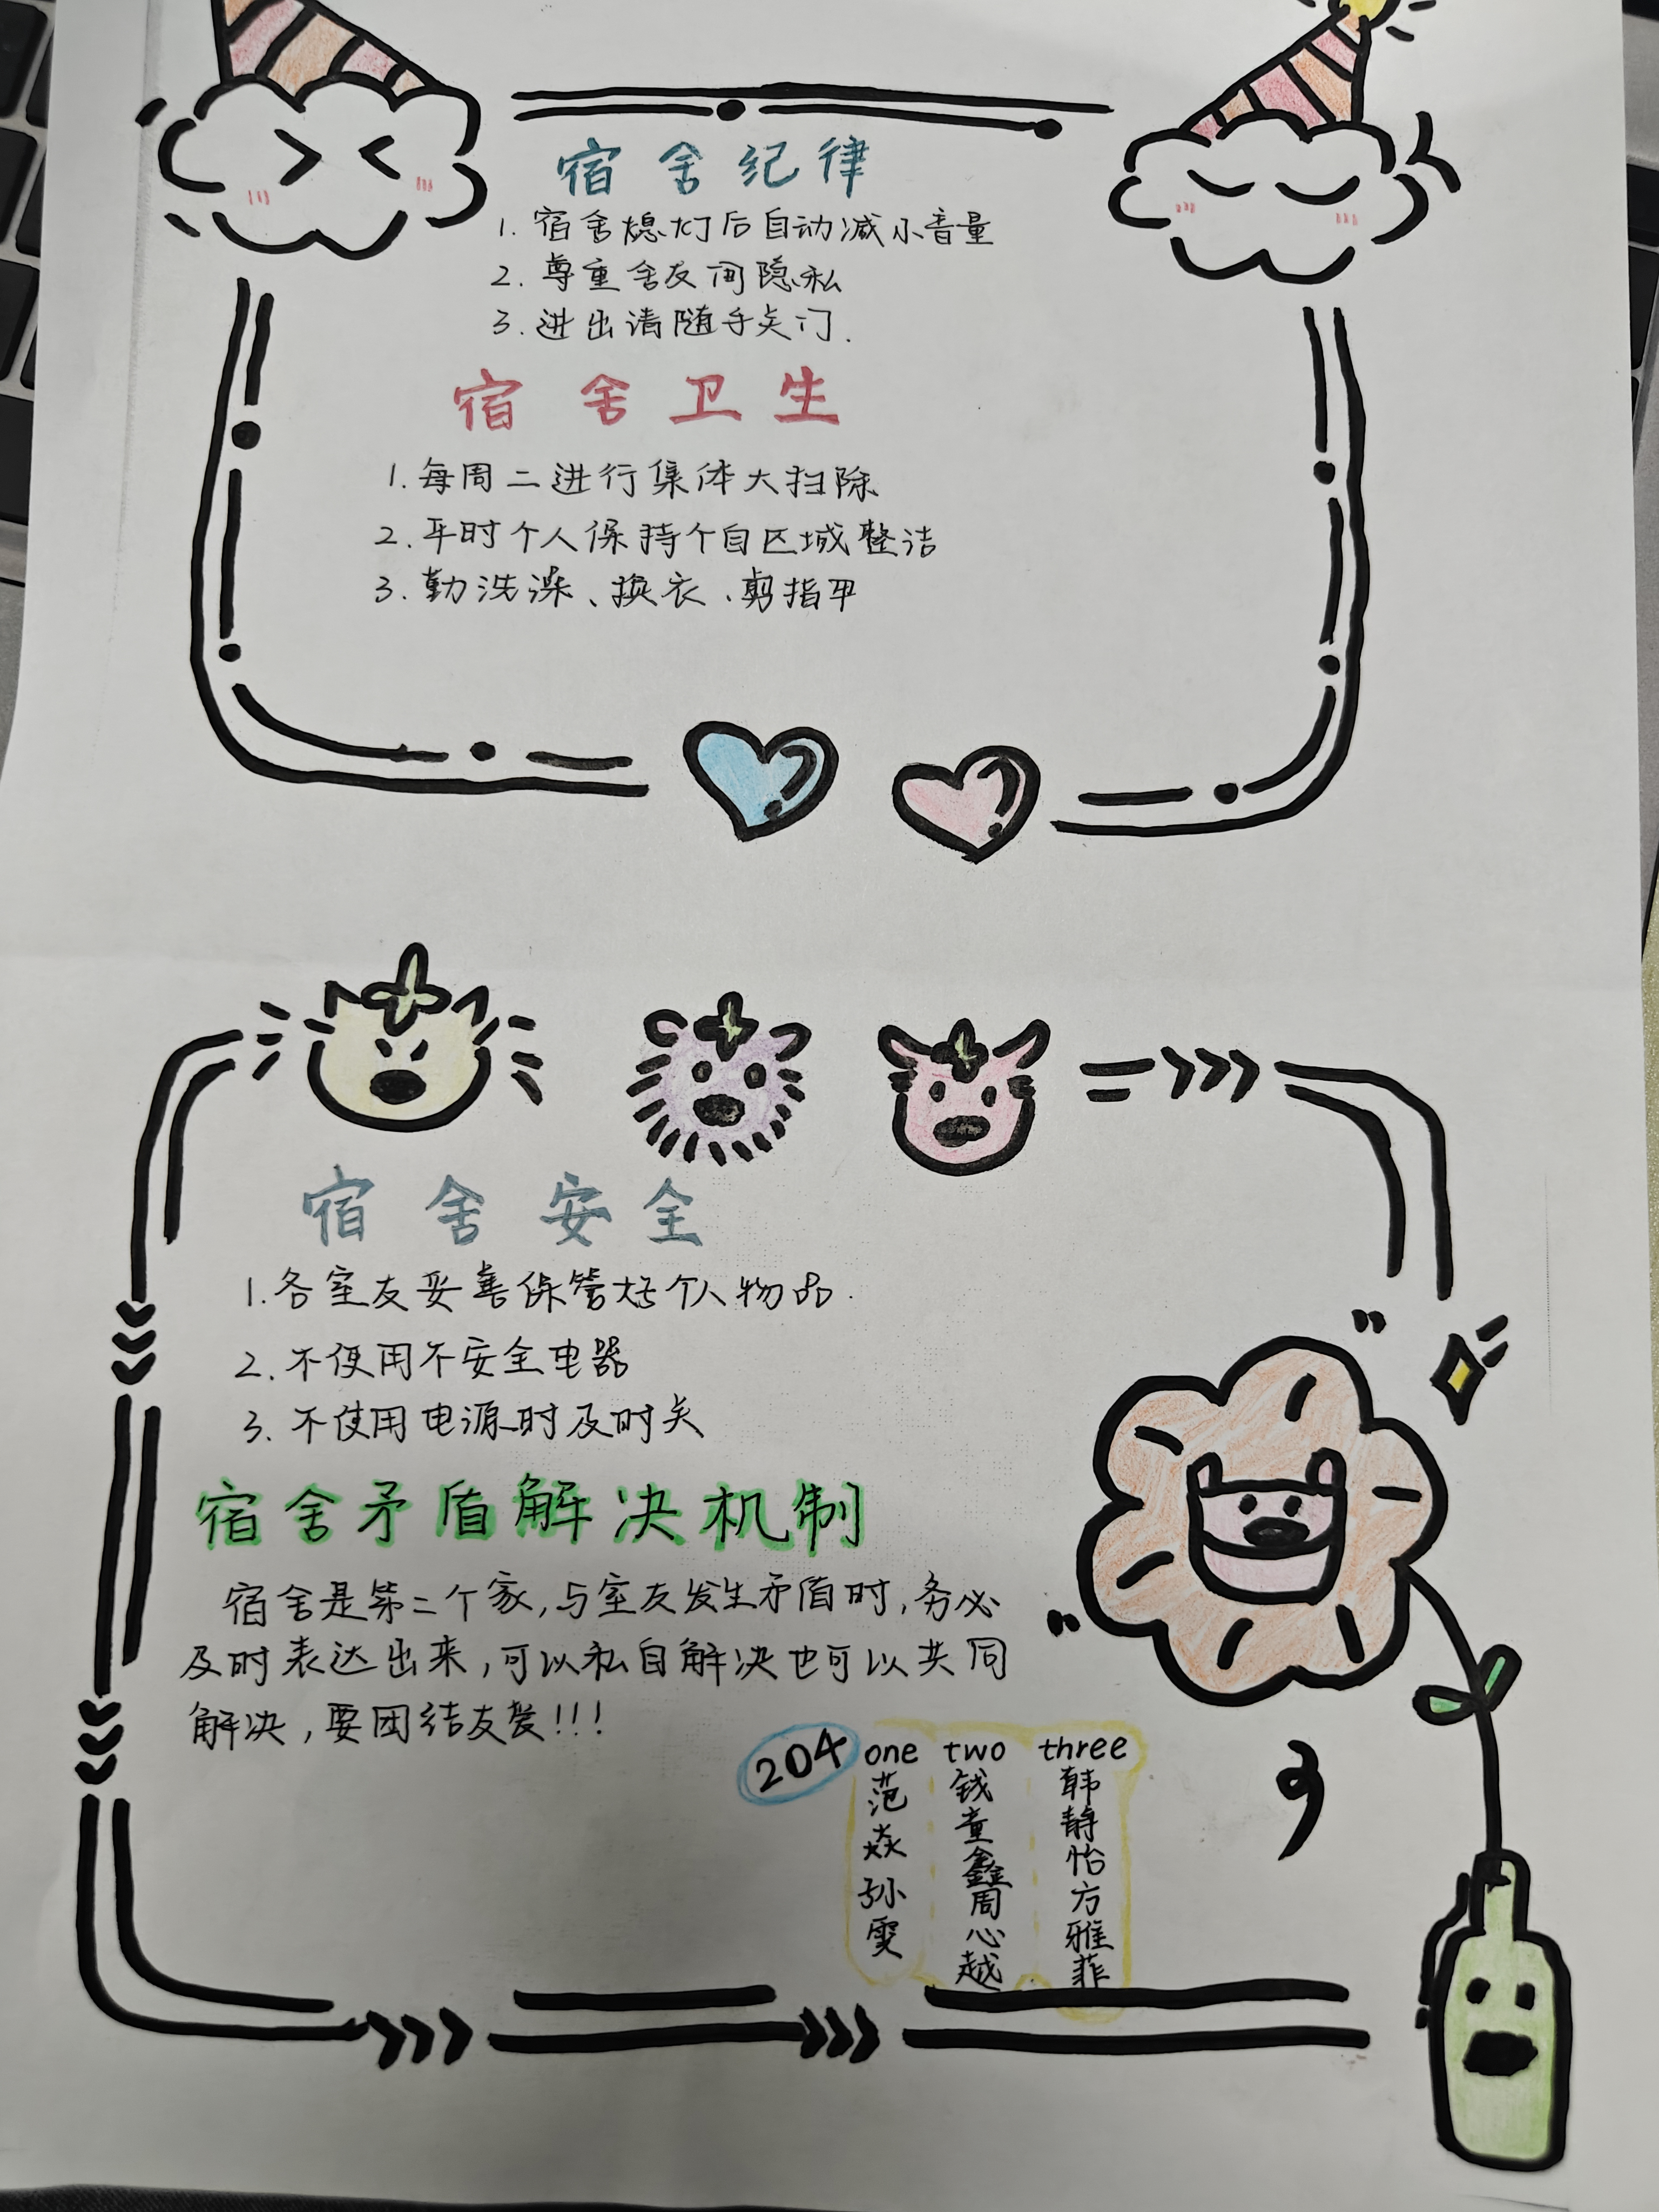 宿舍纪律
1. 宿舍熄灯后自动减小音量
2. 尊重舍友间隐私
3. 进出请随手关门.
宿舍卫生
1. 每周二进行集体大扫除
2. 平时个人保持个自区域整洁
3. 勤洗澡、换衣、剪指甲
宿舍安全
1. 各室友妥善保管好个人物品.
2. 不使用不安全电器
3. 不使用电源时及时关
宿舍矛盾解决机制
宿舍是第二个家,与室友发生矛盾时,务必
及时表达出来,可以私自解决也可以共同
解决,要团结友爱!!!
204
one two three
范焱 孙雯
钱童鑫 周心越
韩静怡 方雅菲